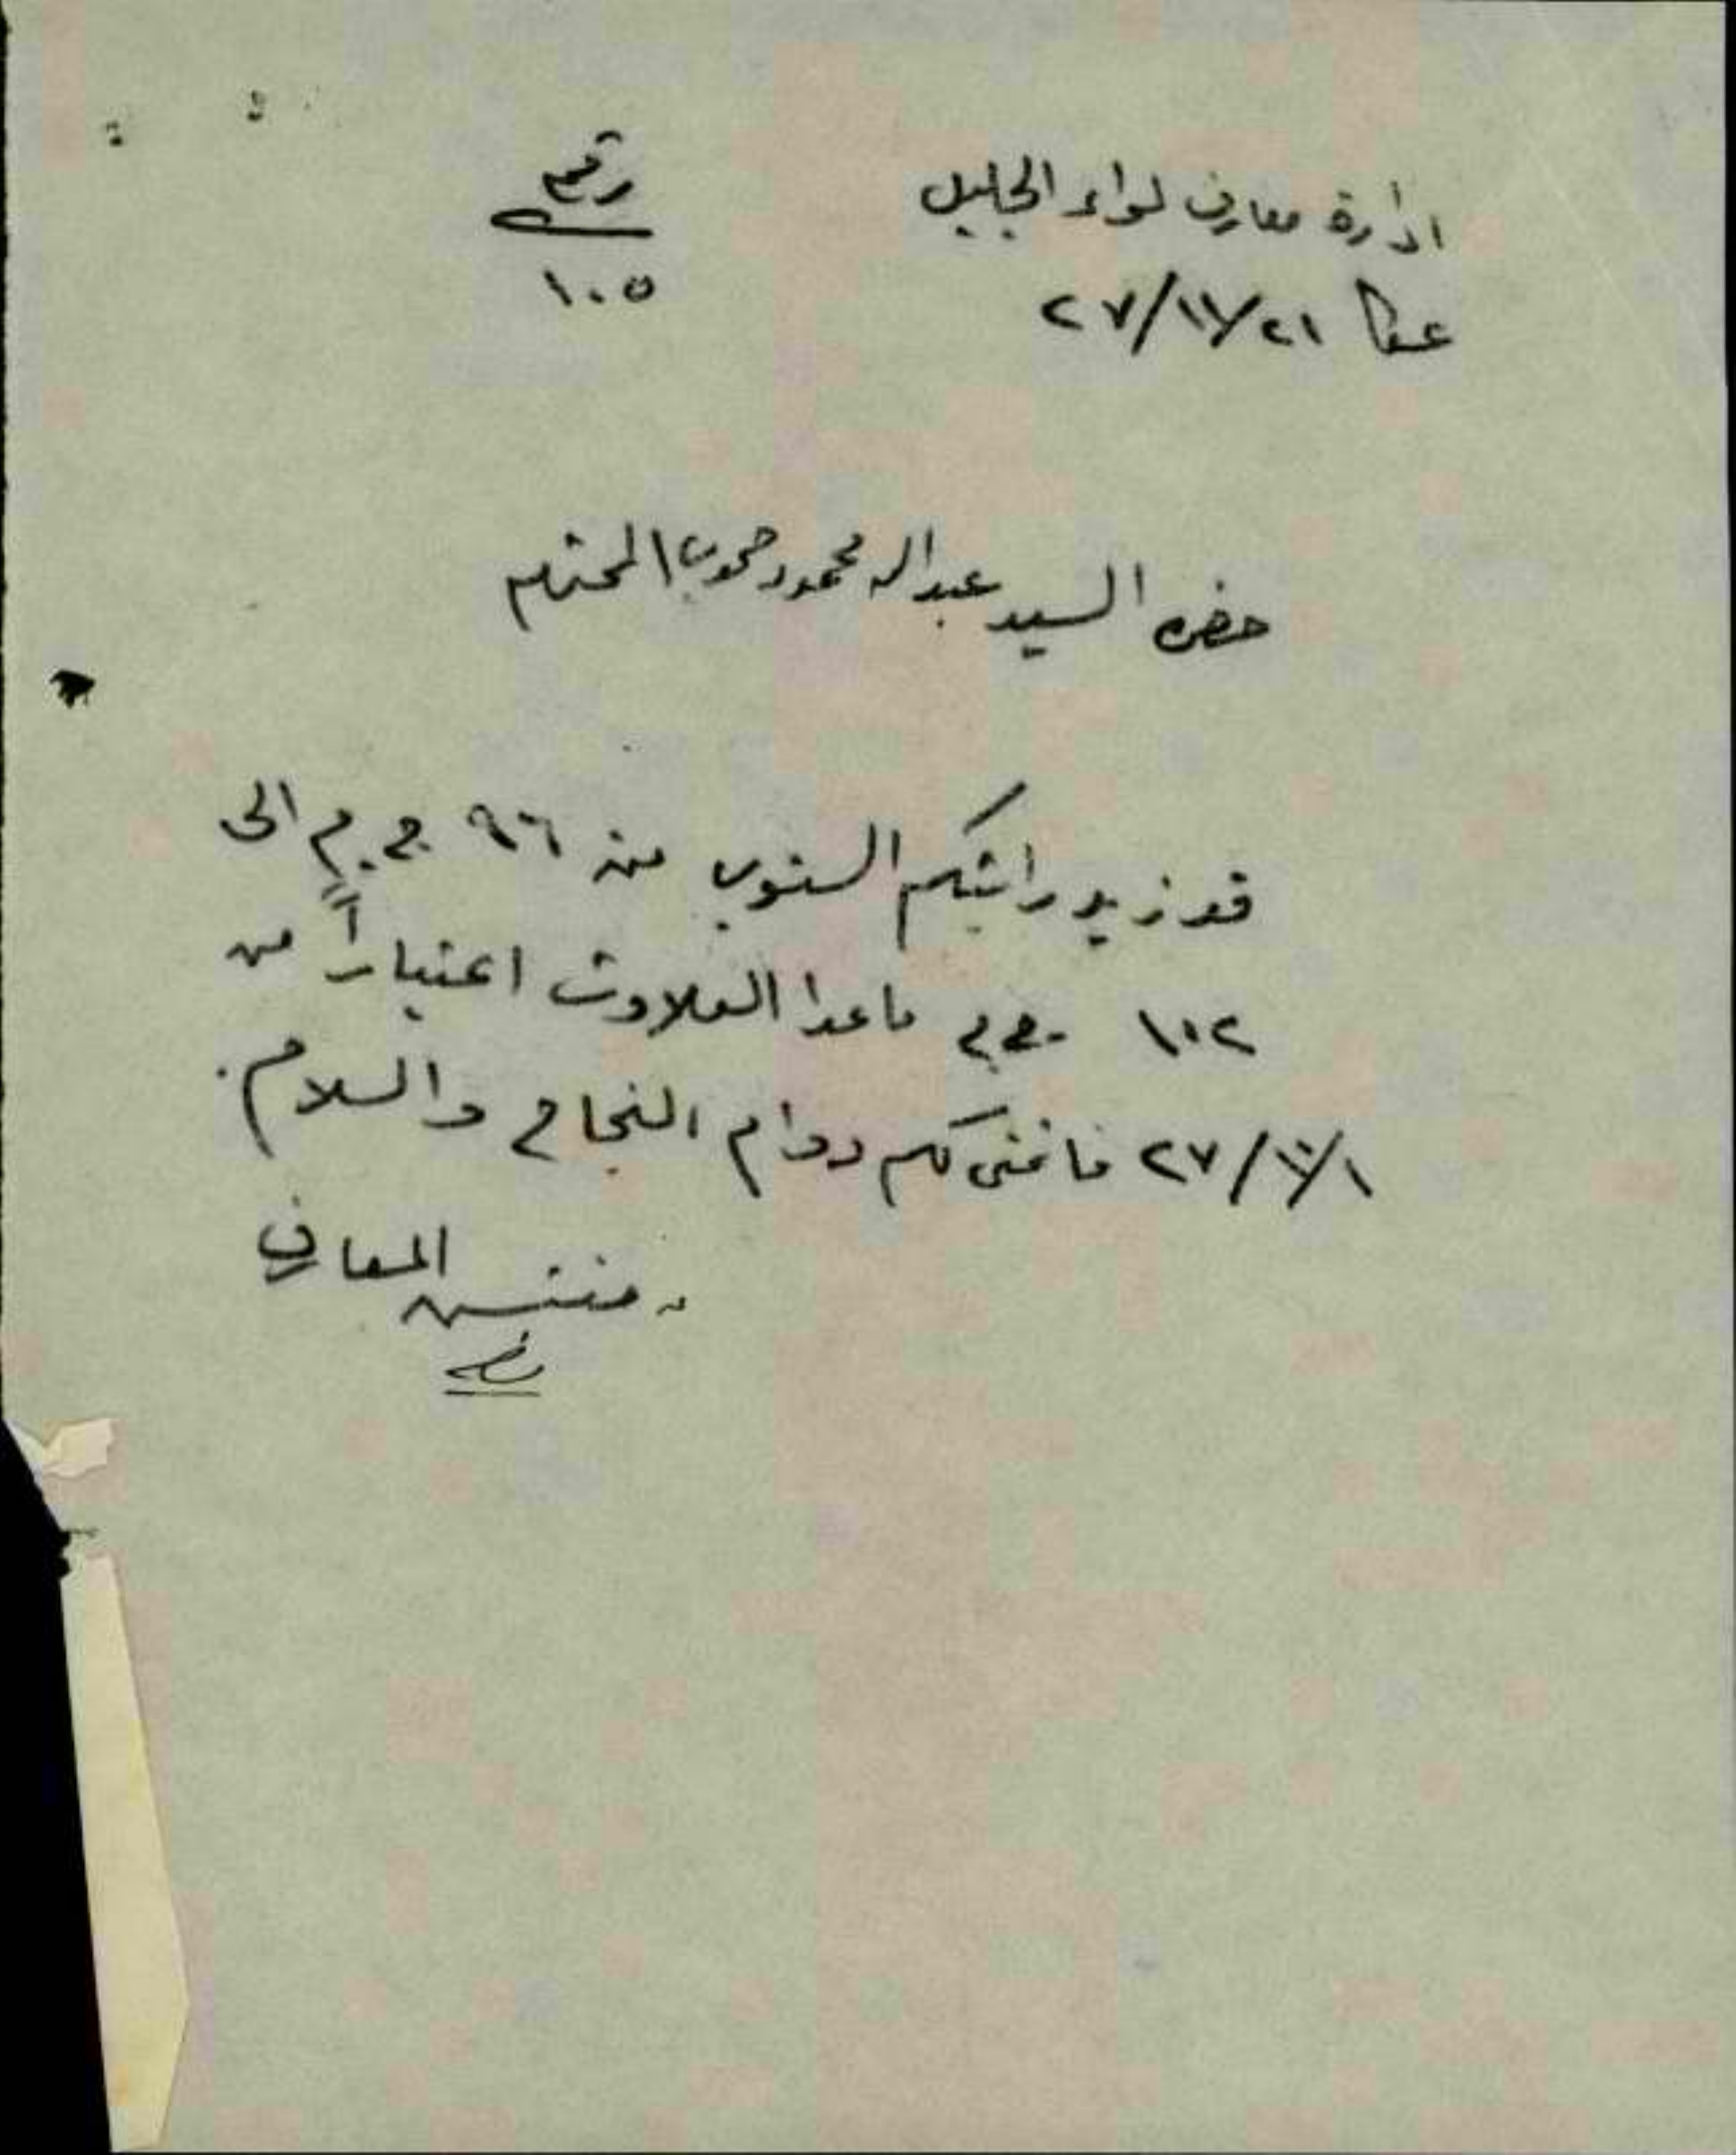 ادارة معارف لواء الجليل
عكا ٢٧/١١/٢١
رقم
١٠٥
حضرة السيد عبد الله محمود المحترم
قد زيد راتبكم السنوي من ٩٦ ج.م الى
١٠٢ ج.م ما عدا العلاوت اعتباراً من
٢٧/١٠/١ فاتمنى لكم دوام النجاح والسلام.
مفتش المعارف